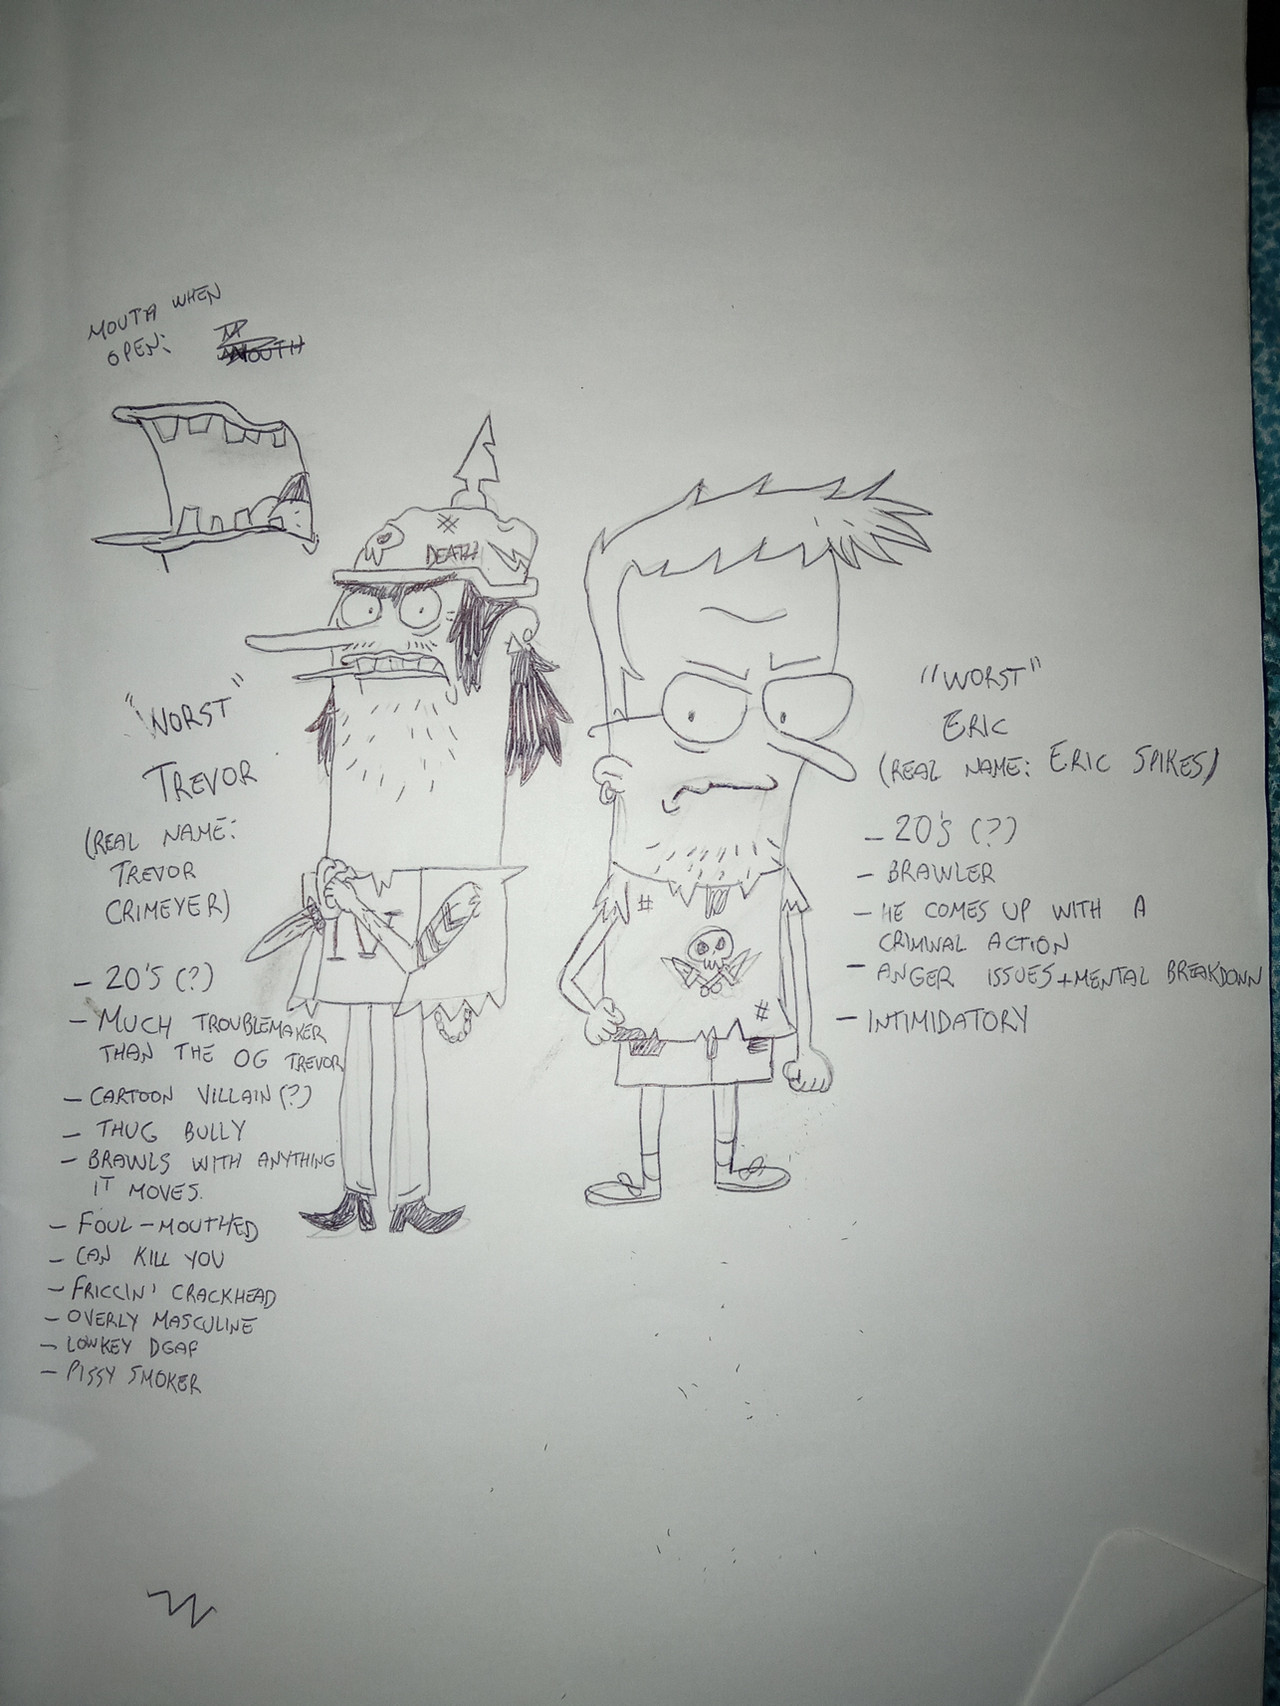 MOUTH WHEN
OPEN:
DEATH
"WORST"
TREVOR
(REAL NAME:
TREVOR
CRIMEYER)
- 20'S (?)
- MUCH TROUBLEMAKER
THAN THE OG TREVOR
- CARTOON VILLAIN (?)
- THUG BULLY
- BRAWLS WITH ANYTHING
IT MOVES.
- FOUL-MOUTHED
- CAN KILL YOU
- FRICCIN' CRACKHEAD
- OVERLY MASCULINE
- LOWKEY DGAF
- PISSY SMOKER
"WORST"
ERIC
(REAL NAME: ERIC SPIKES)
- 20'S (?)
- BRAWLER
- HE COMES UP WITH A
CRIMINAL ACTION
- ANGER ISSUES+MENTAL BREAKDOWN
- INTIMIDATORY